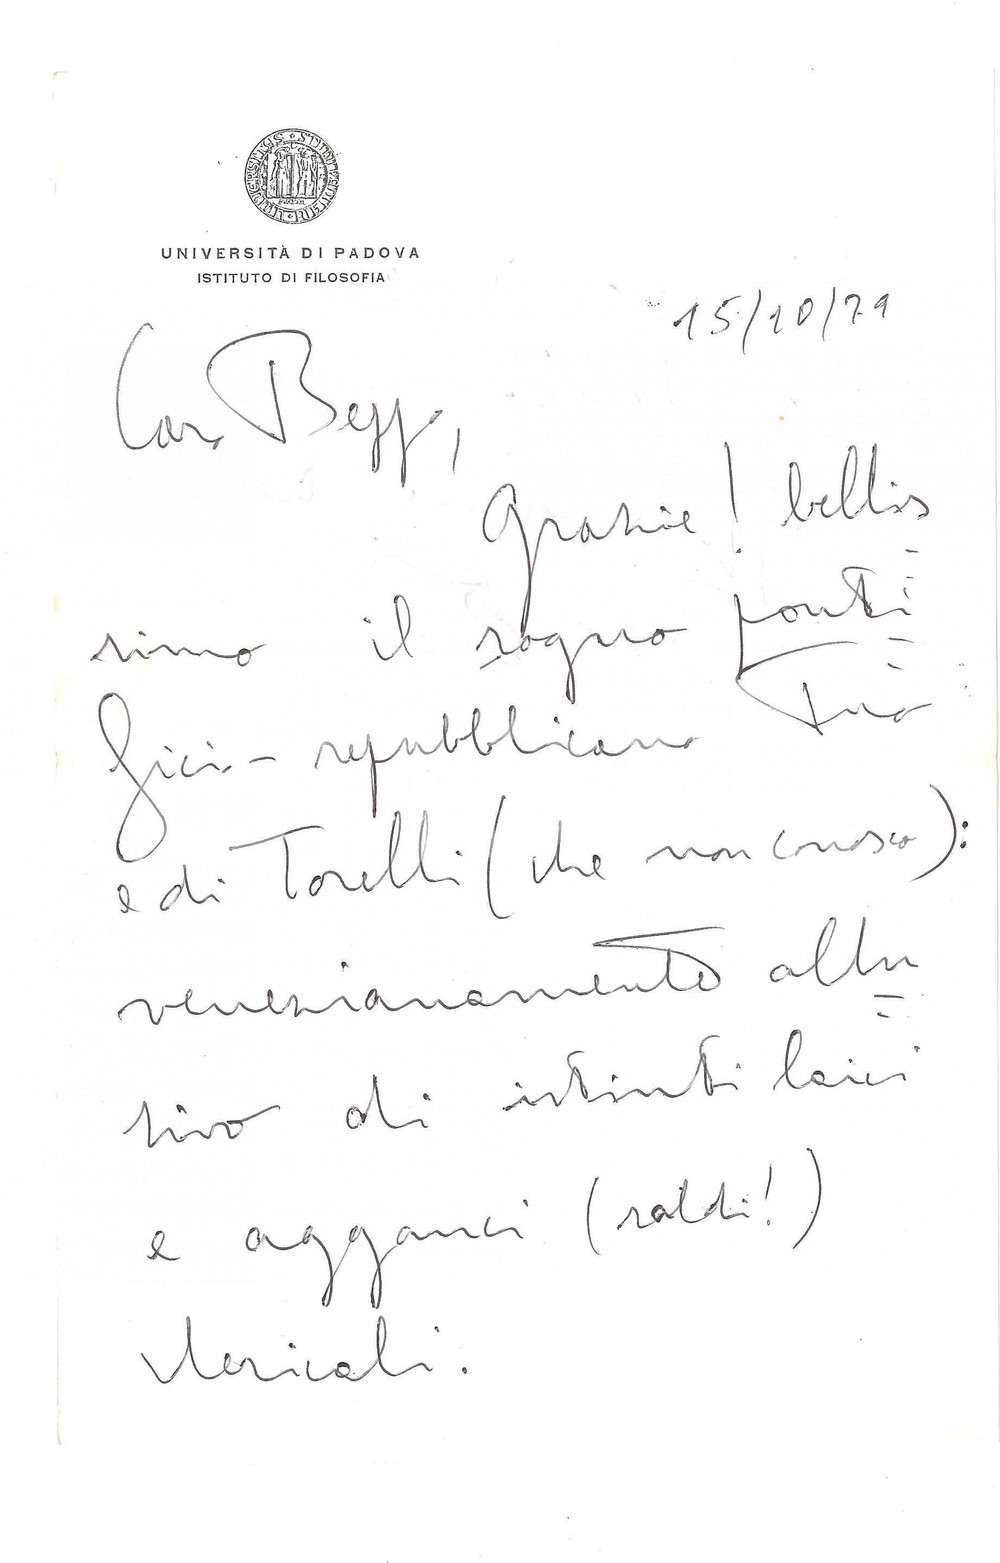 UNIVERSITÀ DI PADOVA
ISTITUTO DI FILOSOFIA
15/10/79
Caro Beppe,
Grazie! bellis
simo il sogno ponti
ficio-repubblicano Tuo
e di Torelli (che non conosco):
venezianamente allu
sivo di istinti laici
e agganci (saldi!)
clericali.